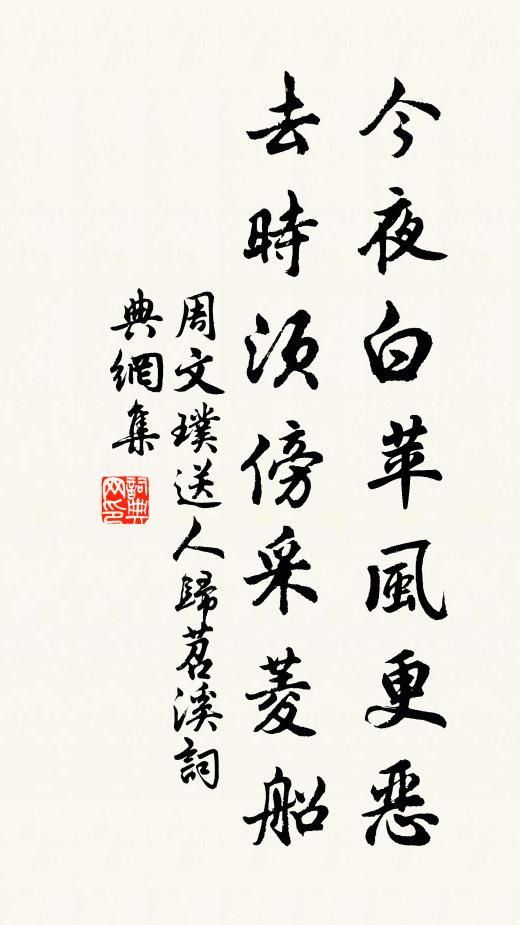 今夜白苹風更惡
去時須傍采菱船
周文璞送人歸苕溪詞
典網集
詞典網印